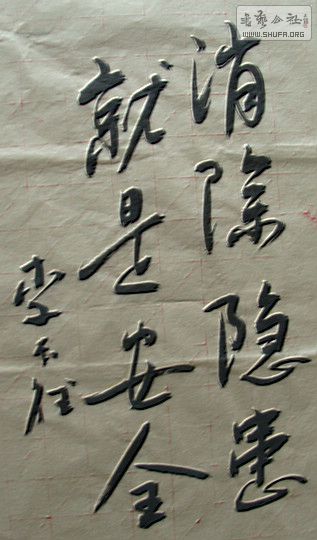 消除隐患
就是安全
书艺公社
WWW.SHUFA.ORG